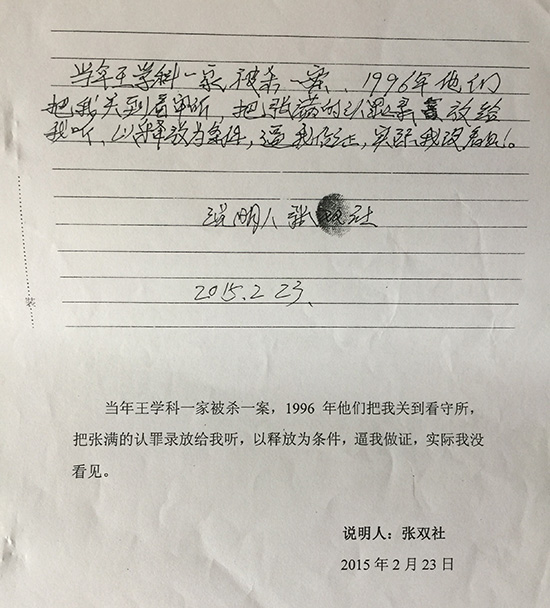 当年王学科一家被杀一案、1996年他们
把我关到看守所 把张满的认罪录音放给
我听、以释放为条件,逼我做证,实际我没看见。
说明人 张双社
2015.2 23.
装
当年王学科一家被杀一案，1996 年他们把我关到看守所，
把张满的认罪录放给我听，以释放为条件，逼我做证，实际我没
看见。
说明人：张双社
2015 年 2 月 23 日